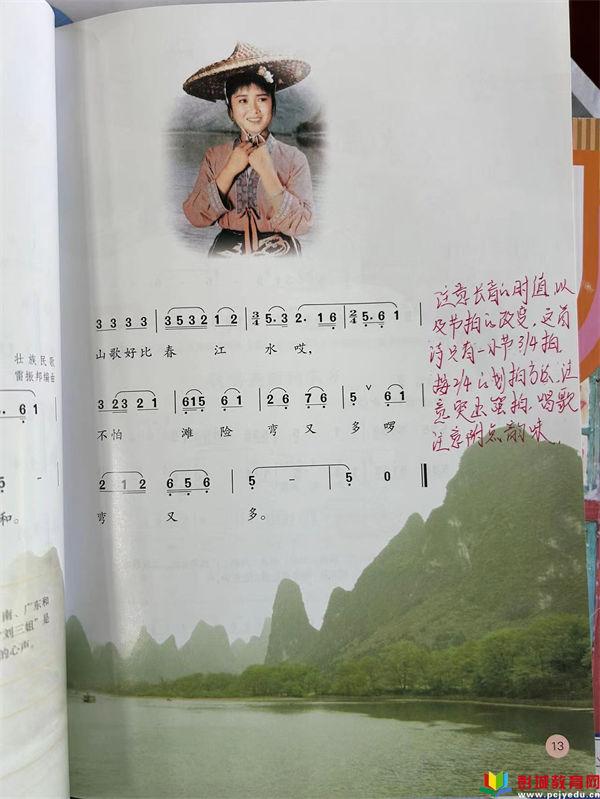 壮族民歌
雷振邦编曲
6 1
5
和。
南、广东和
"刘三姐"是
的心声。
3 3 3 3 | 3 5 3 2 1 2 | 3/4 5. 3 2. 1 6 | 2/4 5. 6 1 |
山歌好比 春 江 水 哎，
3 23 2 1 | 615 6 1 | 2 6 7 6 | 5 ∨ 6 1 |
不怕 滩 险 弯 又 多 啰
2 1 2 | 6 5 6 | 5 - | 5 0 ‖
弯 又 多。
注意长音的时值以
及节拍的改变，这首
诗只有一小节3/4拍
按2/4的划拍方法，注
意突出强拍，唱歌
注意附点韵味
13
彭城教育网
www.pcjyedu.cn